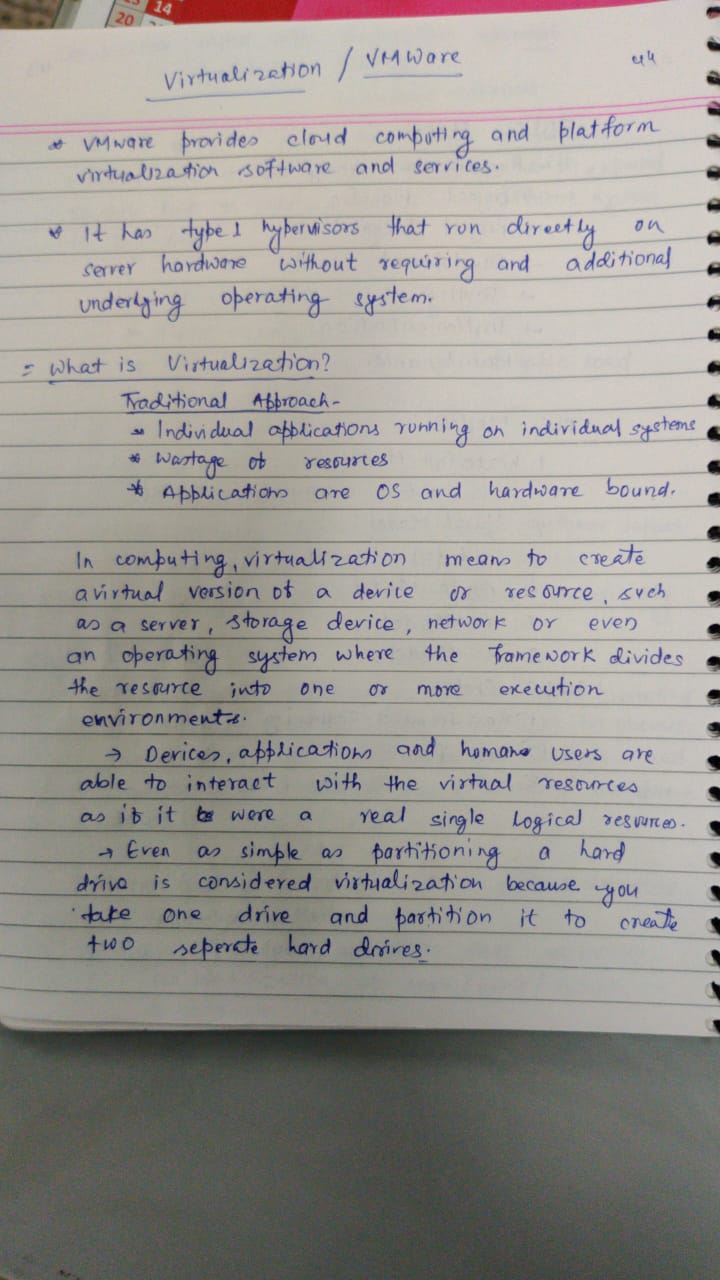 13 14
20
Virtualization / VMWare
44
* VMware provides cloud computing and platform
virtualization software and services.
* It has type 1 hypervisors that run directly on
server hardware without requiring and additional
underlying operating system.
= What is Virtualization?
Traditional Approach-
* Individual applications running on individual systems
* Wastage of resources
* Applications are OS and hardware bound.
In computing, virtualization means to create
a virtual version of a device or resource, such
as a server, storage device, network or even
an operating system where the framework divides
the resource into one or more execution
environments.
→ Devices, applications and humans users are
able to interact with the virtual resources
as if it were a real single logical resources.
→ Even as simple as partitioning a hard
drive is considered virtualization because you
take one drive and partition it to create
two seperate hard drives.